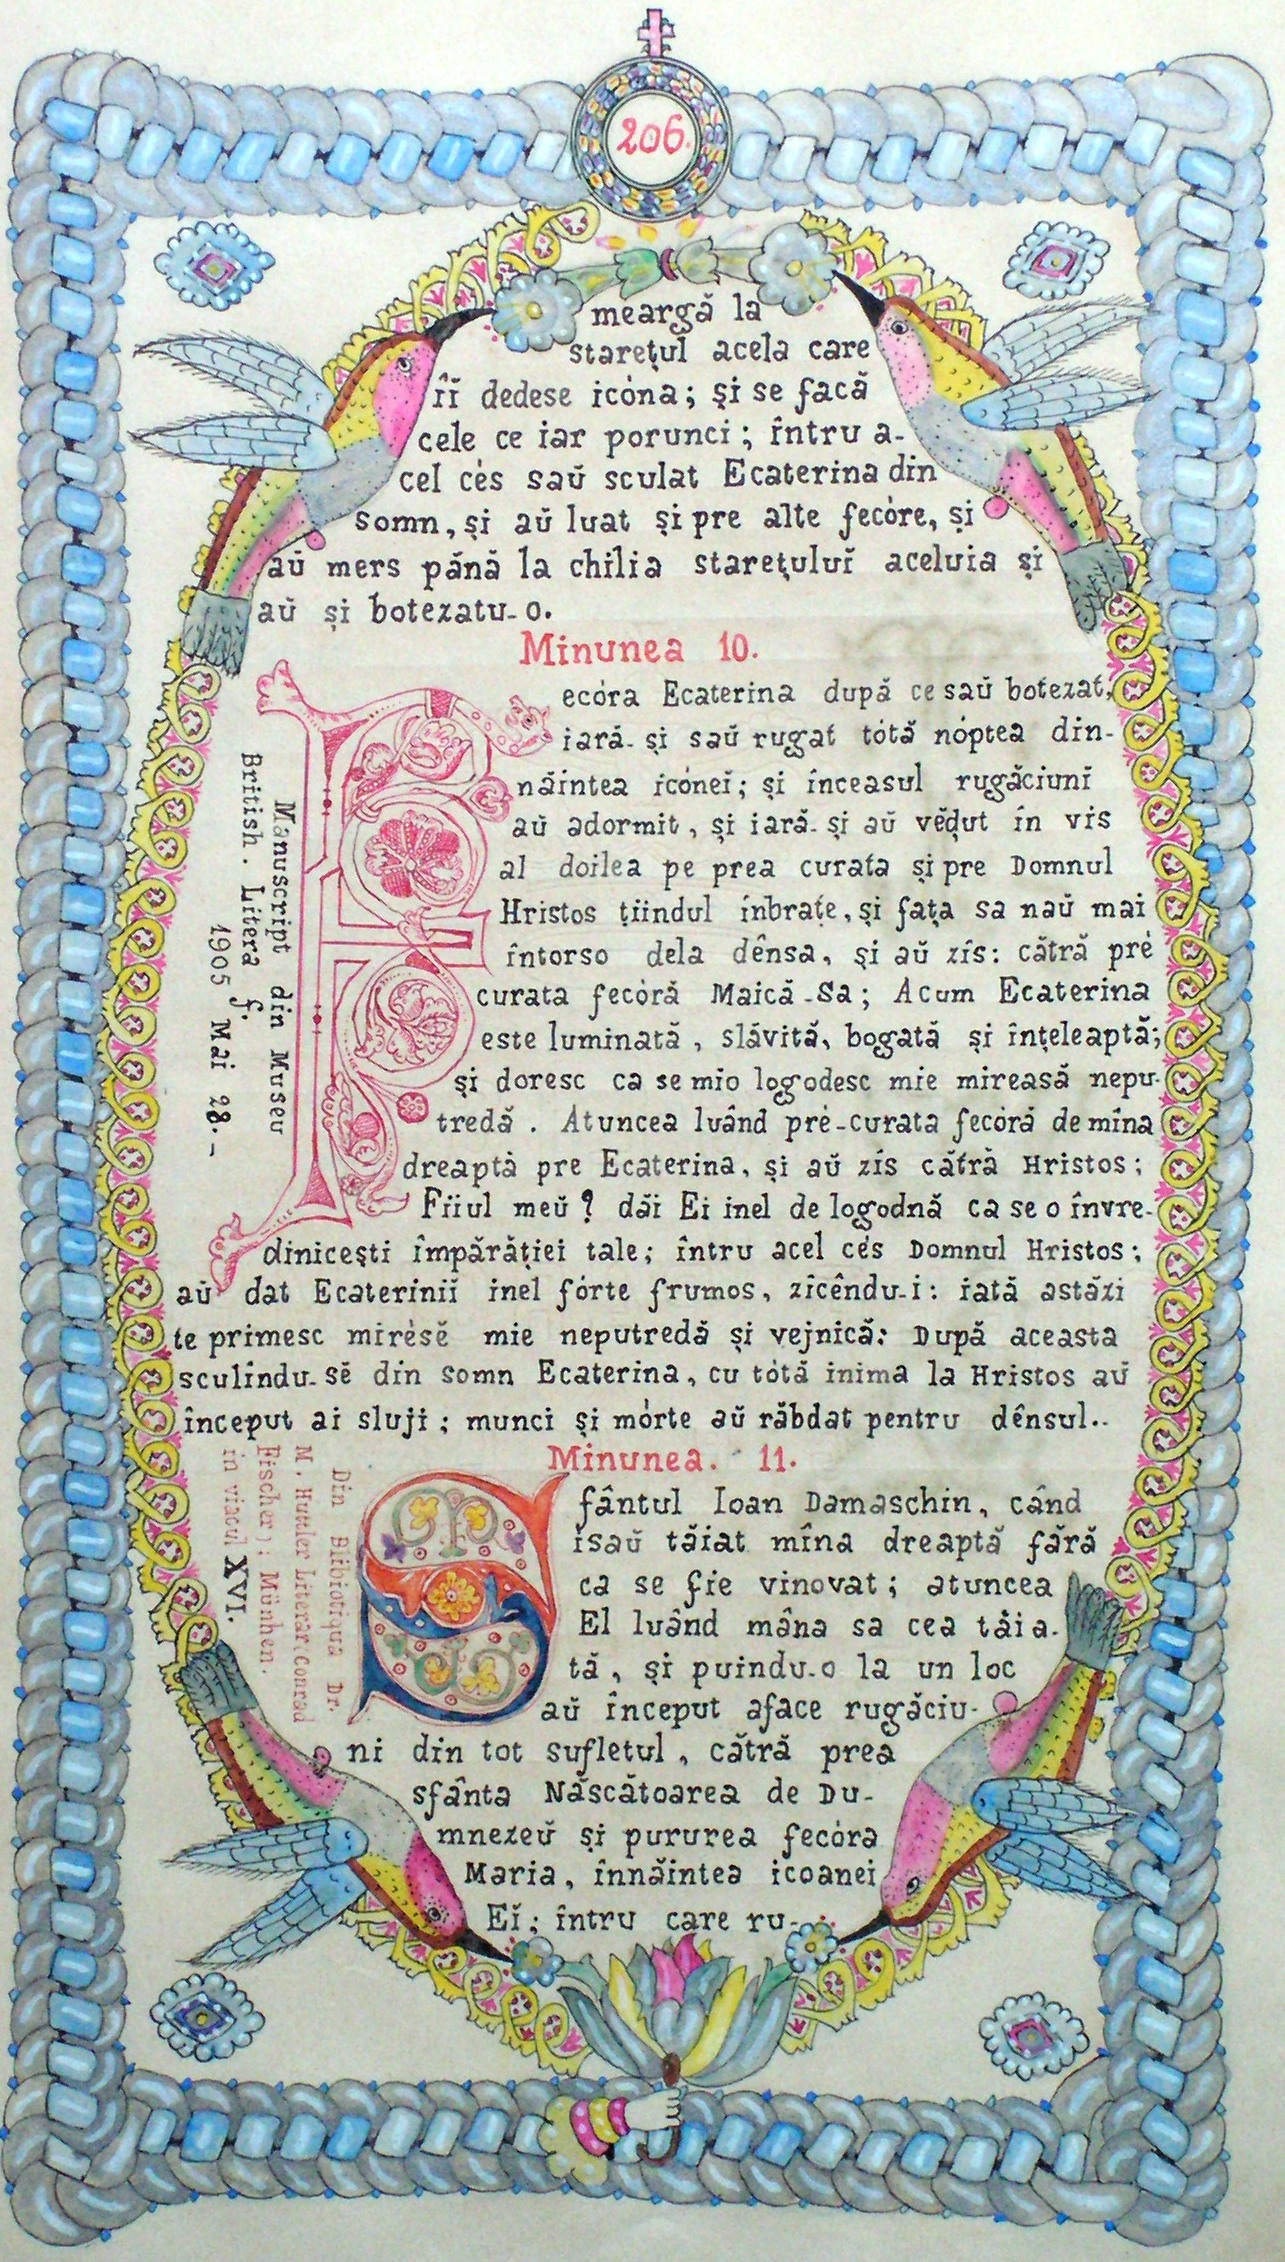 206.
meargă la
starețul acela care
îĭ dedese icòna; și se facă
cele ce iar porunci; întru a-
cel cès saŭ sculat Ecaterina din
somn, și aŭ luat și pre alte fecòre, și
aŭ mers până la chilia starețuluĭ aceluia și
aŭ și botezatu-o.
Minunea 10.
Fecòra Ecaterina după ce saŭ botezat,
iară-și saŭ rugat tòtă nòptea din-
năintea icòneĭ; și înceasul rugăciunĭ
aŭ adormit, și iară-și aŭ vĕḑut în vis
al doilea pe prea curata și pre Domnul
Hristos țiindul înbrațe, și fața sa naŭ mai
întorso dela dênsa, și aŭ zîs: cătră prè
curata fecòră Maică-Sa; Acum Ecaterina
este luminată, slăvită, bogată și înțeleaptă;
și doresc ca se mio logodesc mie mireasă nepu-
tredă. Atuncea luând prè-curata fecòră de mîna
dreaptă pre Ecaterina, și aŭ zîs cătră Hristos;
Fiiul meŭ? dăi Ei inel de logodnă ca se o învre-
dinicești împărăției tale; întru acel cès Domnul Hristos;
aŭ dat Ecaterinii inel fòrte frumos, zicêndu-i: iată astăzi
te primesc mirèsĕ mie neputredă și vejnică: După aceasta
sculîndu-sĕ din somn Ecaterina, cu tòtă inima la Hristos aŭ
început ai sluji; munci și mòrte aŭ răbdat pentru dênsul..
Manuscript din Museu
British. Litera f.
1905 Mai 28.-
Minunea. 11.
Sfântul Ioan Damaschin, când
isaŭ tăiat mîna dreaptă fără
ca se fie vinovat; atuncea
El luând mâna sa cea tăia-
tă, și puindu-o la un loc
aŭ început aface rugăciu-
ni din tot sufletul, cătră prea
sfânta Născătoarea de Du-
mnezeŭ și pururea fecòra
Maria, înnăintea icoanei
Eĭ; întru care ru-
Din Blibiotiqua Dr.
M. Huttler Literâr (Conrad
Fischer): Münhen.
in viacul XVI.